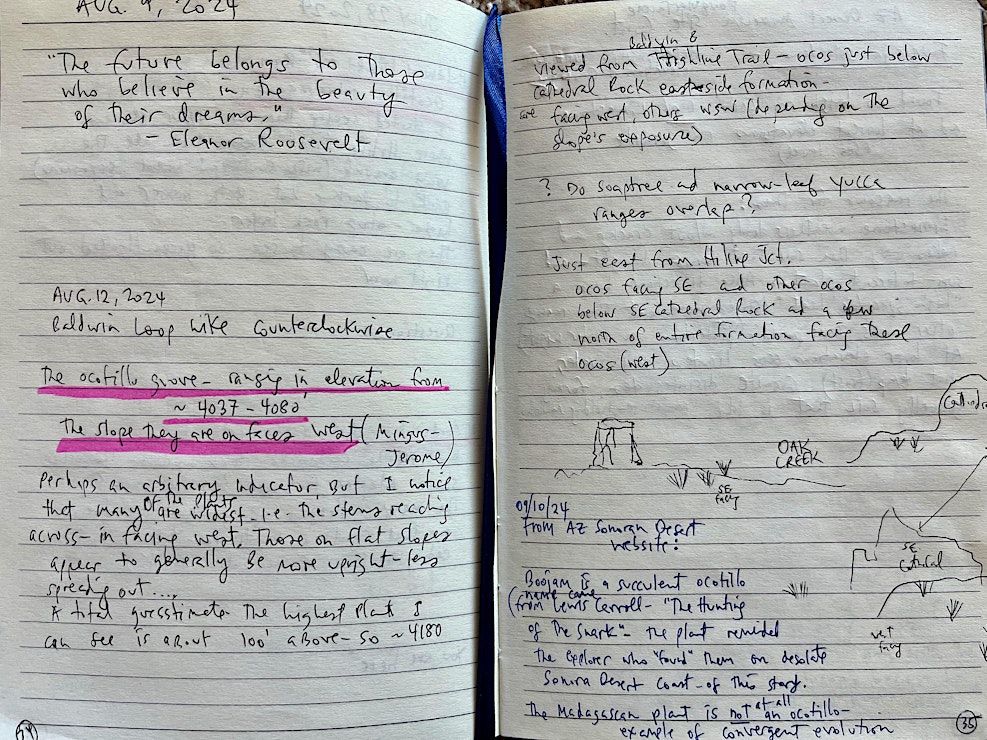 AUG. 9, 2024
"The future belongs to those
who believe in the beauty
of their dreams."
- Eleanor Roosevelt
AUG. 12, 2024
Baldwin Loop hike counterclockwise
The ocotillo grove - ranging in elevation from
~ 4037 - 4080
The slope they are on faces west (Mingus-
Jerome)
Perhaps an arbitrary indicator, But I notice
that many of the plants are widest - i.e. the stems reaching
across - in facing west. Those on flat slopes
appear to generally be more upright - less
spreading out....
A total guesstimate the highest plant I
can see is about 100' above - so ~ 4180
34
Baldwin &
viewed from Highline Trail - ocos just below
Cathedral Rock east side formation -
are facing west, others wsw (depending on the
slope's opposure)
? Do soaptree and narrow-leaf yucca
ranges overlap?
Just east from Hiline Jct.
ocos facing SE and other ocos
below SE Cathedral Rock and a few
north of entire formation facing these
ocos (west)
Cathedral
OAK
CREEK
SE
facing
09/10/24
From AZ Sonoran Desert
website:
SE
Cathedral
Boojam is a succulent ocotillo
(name came
from Lewis Carroll - "The Hunting
of the Snark" - the plant reminded
the explorer who "found" them on desolate
Sonora Desert Coast - of this story.
west
facing
The Madagascan plant is not at all an ocotillo -
example of convergent evolution
35